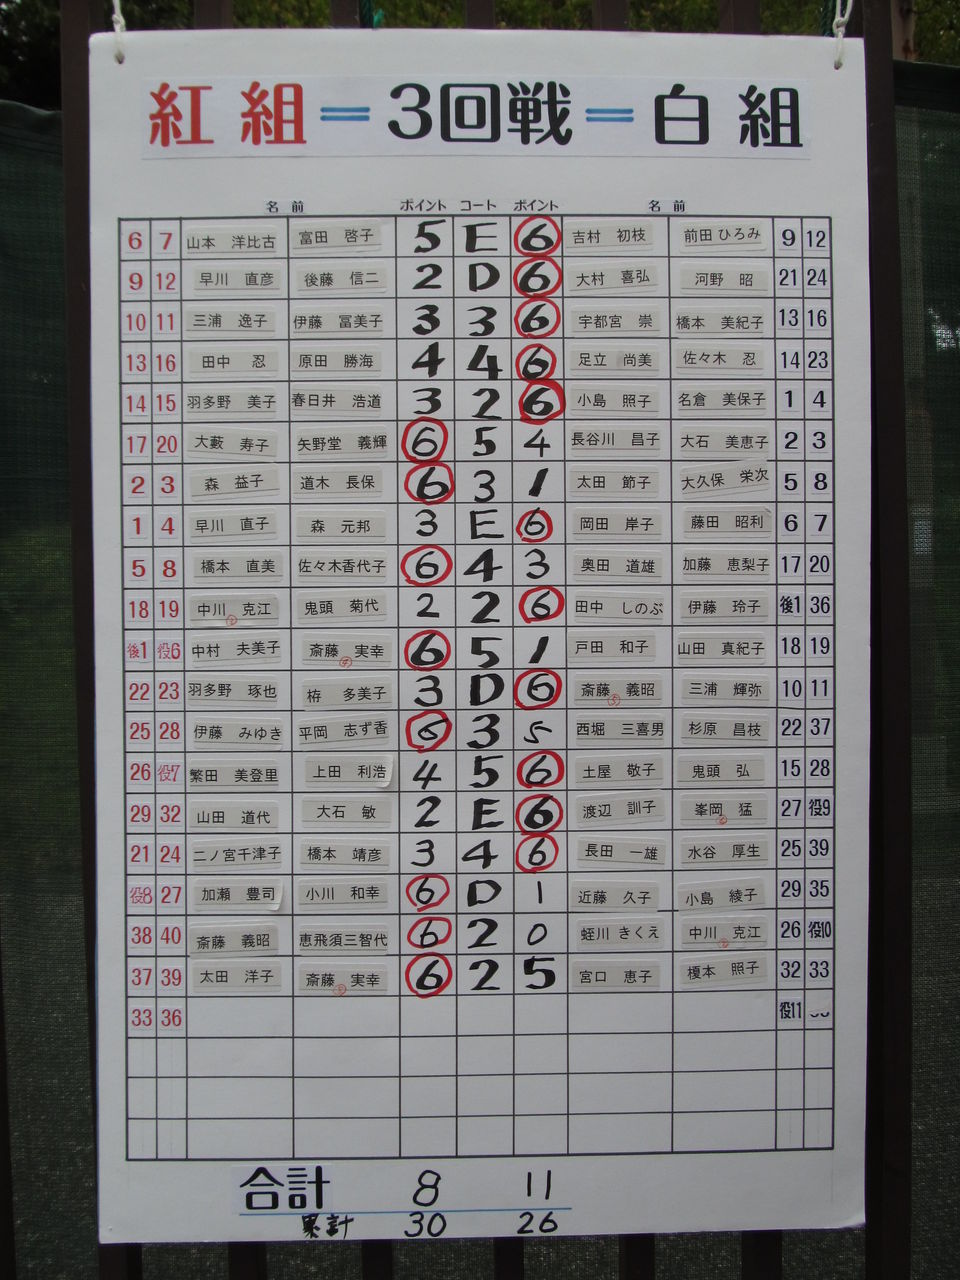 紅組＝3回戦＝白組
名前 ポイント コート ポイント 名前
6 7 山本 洋比古 富田 啓子 5 E 6 吉村 初枝 前田 ひろみ 9 12
9 12 早川 直彦 後藤 信二 2 D 6 大村 喜弘 河野 昭 21 24
10 11 三浦 逸子 伊藤 冨美子 3 3 6 宇都宮 崇 橋本 美紀子 13 16
13 16 田中 忍 原田 勝海 4 4 6 足立 尚美 佐々木 忍 14 23
14 15 羽多野 美子 春日井 浩道 3 2 6 小島 照子 名倉 美保子 1 4
17 20 大薮 寿子 矢野堂 義輝 6 5 4 長谷川 昌子 大石 美恵子 2 3
2 3 森 益子 道木 長保 6 3 1 太田 節子 大久保 栄次 5 8
1 4 早川 直子 森 元邦 3 E 6 岡田 岸子 藤田 昭利 6 7
5 8 橋本 直美 佐々木香代子 6 4 3 奥田 道雄 加藤 恵梨子 17 20
18 19 中川 克江 鬼頭 菊代 2 2 6 田中 しのぶ 伊藤 玲子 後1 36
後1 役6 中村 夫美子 斎藤 実幸 6 5 1 戸田 和子 山田 真紀子 18 19
22 23 羽多野 琢也 栫 多美子 3 D 6 斎藤 義昭 三浦 輝弥 10 11
25 28 伊藤 みゆき 平岡 志ず香 6 3 5 西堀 三喜男 杉原 昌枝 22 37
26 役7 繁田 美登里 上田 利浩 4 5 6 土屋 敬子 鬼頭 弘 15 28
29 32 山田 道代 大石 敏 2 E 6 渡辺 訓子 峯岡 猛 27 役9
21 24 二ノ宮千津子 橋本 靖彦 3 4 6 長田 一雄 水谷 厚生 25 39
役8 27 加瀬 豊司 小川 和幸 6 D 1 近藤 久子 小島 綾子 29 35
38 40 斎藤 義昭 恵飛須三智代 6 2 0 蛭川 きくえ 中川 克江 26 役10
37 39 太田 洋子 斎藤 実幸 6 2 5 宮口 恵子 榎本 照子 32 33
33 36 役11
合計 8 11
累計 30 26